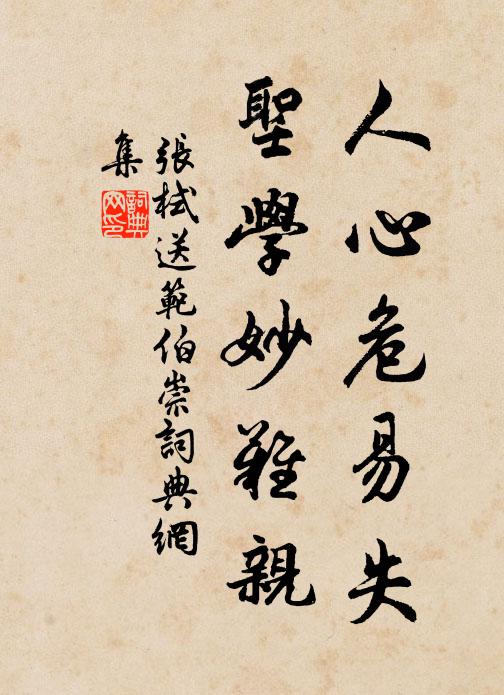 人心危易失
聖學妙難親
張栻送範伯崇詞典網
集
詞典
网印